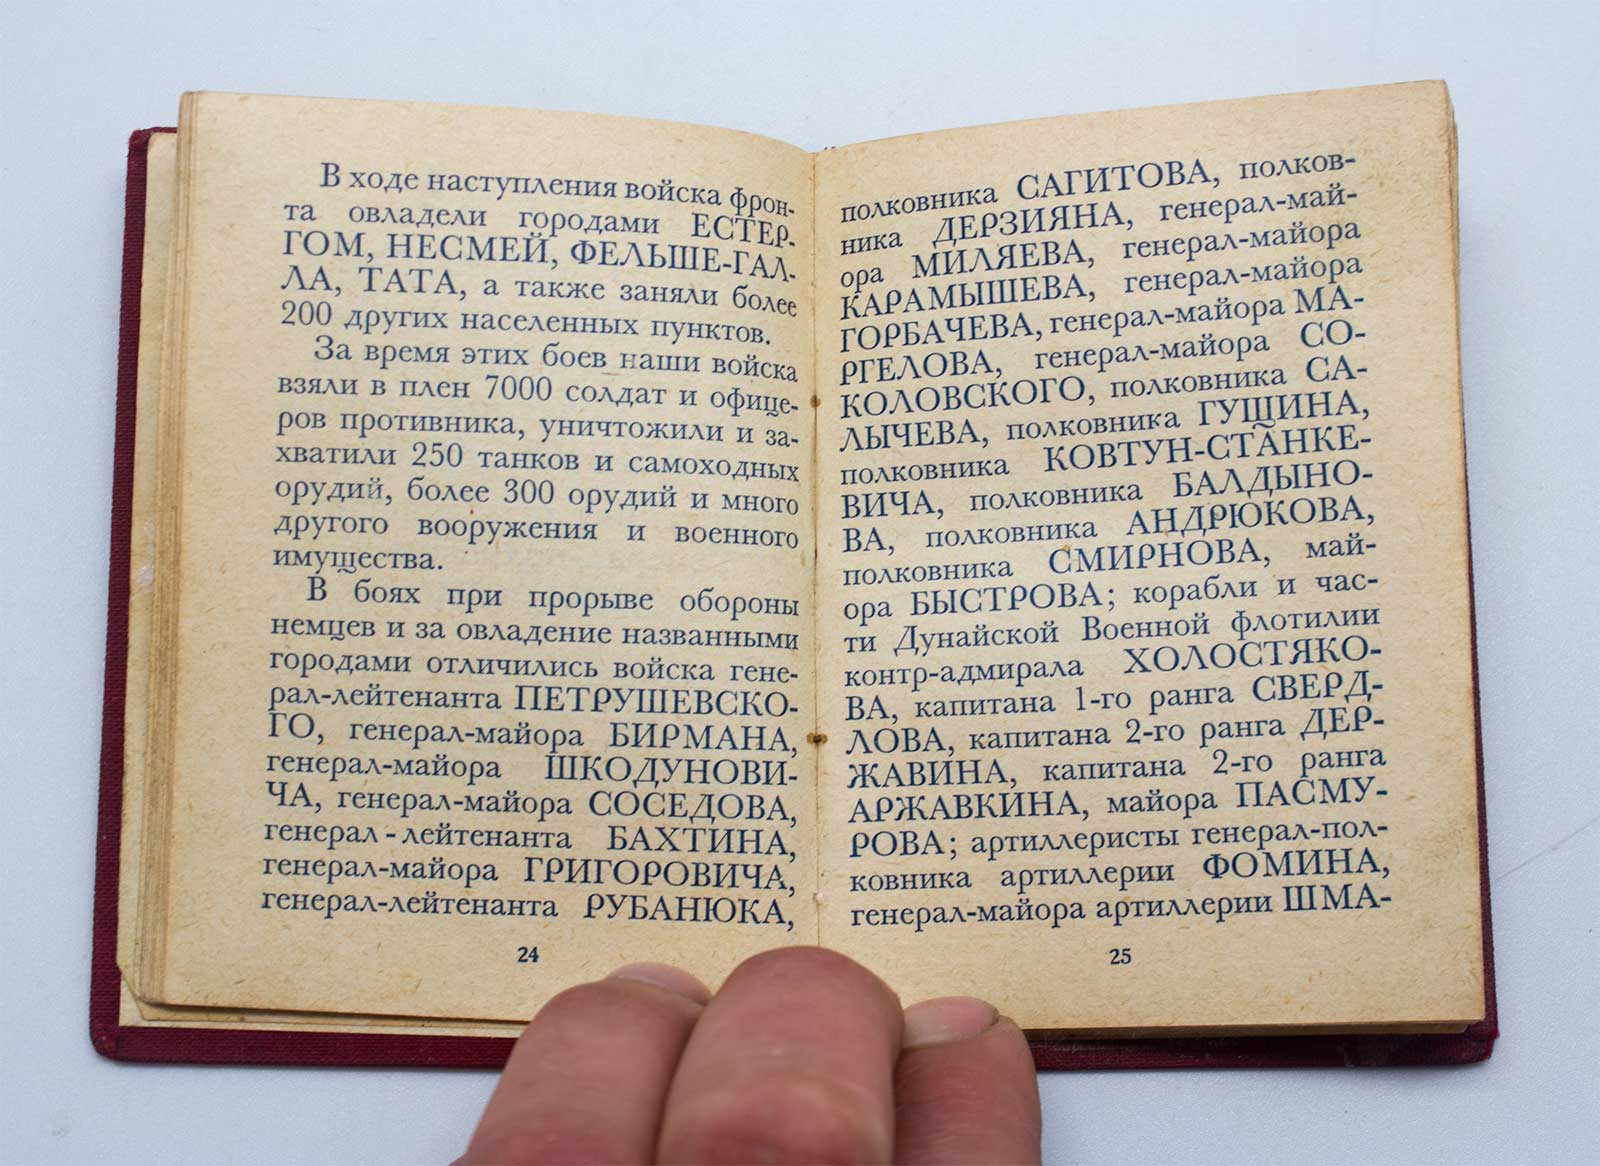 В ходе наступления войска фрон-
та овладели городами ЕСТЕР-
ГОМ, НЕСМЕЙ, ФЕЛЬШЕ-ГАЛ-
ЛА, ТАТА, а также заняли более
200 других населенных пунктов.
За время этих боев наши войска
взяли в плен 7000 солдат и офице-
ров противника, уничтожили и за-
хватили 250 танков и самоходных
орудий, более 300 орудий и много
другого вооружения и военного
имущества.
В боях при прорыве обороны
немцев и за овладение названными
городами отличились войска гене-
рал-лейтенанта ПЕТРУШЕВСКО-
ГО, генерал-майора БИРМАНА,
генерал-майора ШКОДУНОВИ-
ЧА, генерал-майора СОСЕДОВА,
генерал-лейтенанта БАХТИНА,
генерал-майора ГРИГОРОВИЧА,
генерал-лейтенанта РУБАНЮКА,
24
полковника САГИТОВА, полков-
ника ДЕРЗИЯНА, генерал-май-
ора МИЛЯЕВА, генерал-майора
КАРАМЫШЕВА, генерал-майора
ГОРБАЧЕВА, генерал-майора МА-
РГЕЛОВА, генерал-майора СО-
КОЛОВСКОГО, полковника СА-
ЛЫЧЕВА, полковника ГУЩИНА,
полковника КОВТУН-СТАНКЕ-
ВИЧА, полковника БАЛДЫНО-
ВА, полковника АНДРЮКОВА,
полковника СМИРНОВА, май-
ора БЫСТРОВА; корабли и час-
ти Дунайской Военной флотилии
контр-адмирала ХОЛОСТЯКО-
ВА, капитана 1-го ранга СВЕРД-
ЛОВА, капитана 2-го ранга ДЕР-
ЖАВИНА, капитана 2-го ранга
АРЖАВКИНА, майора ПАСМУ-
РОВА; артиллеристы генерал-пол-
ковника артиллерии ФОМИНА,
генерал-майора артиллерии ШМА-
25